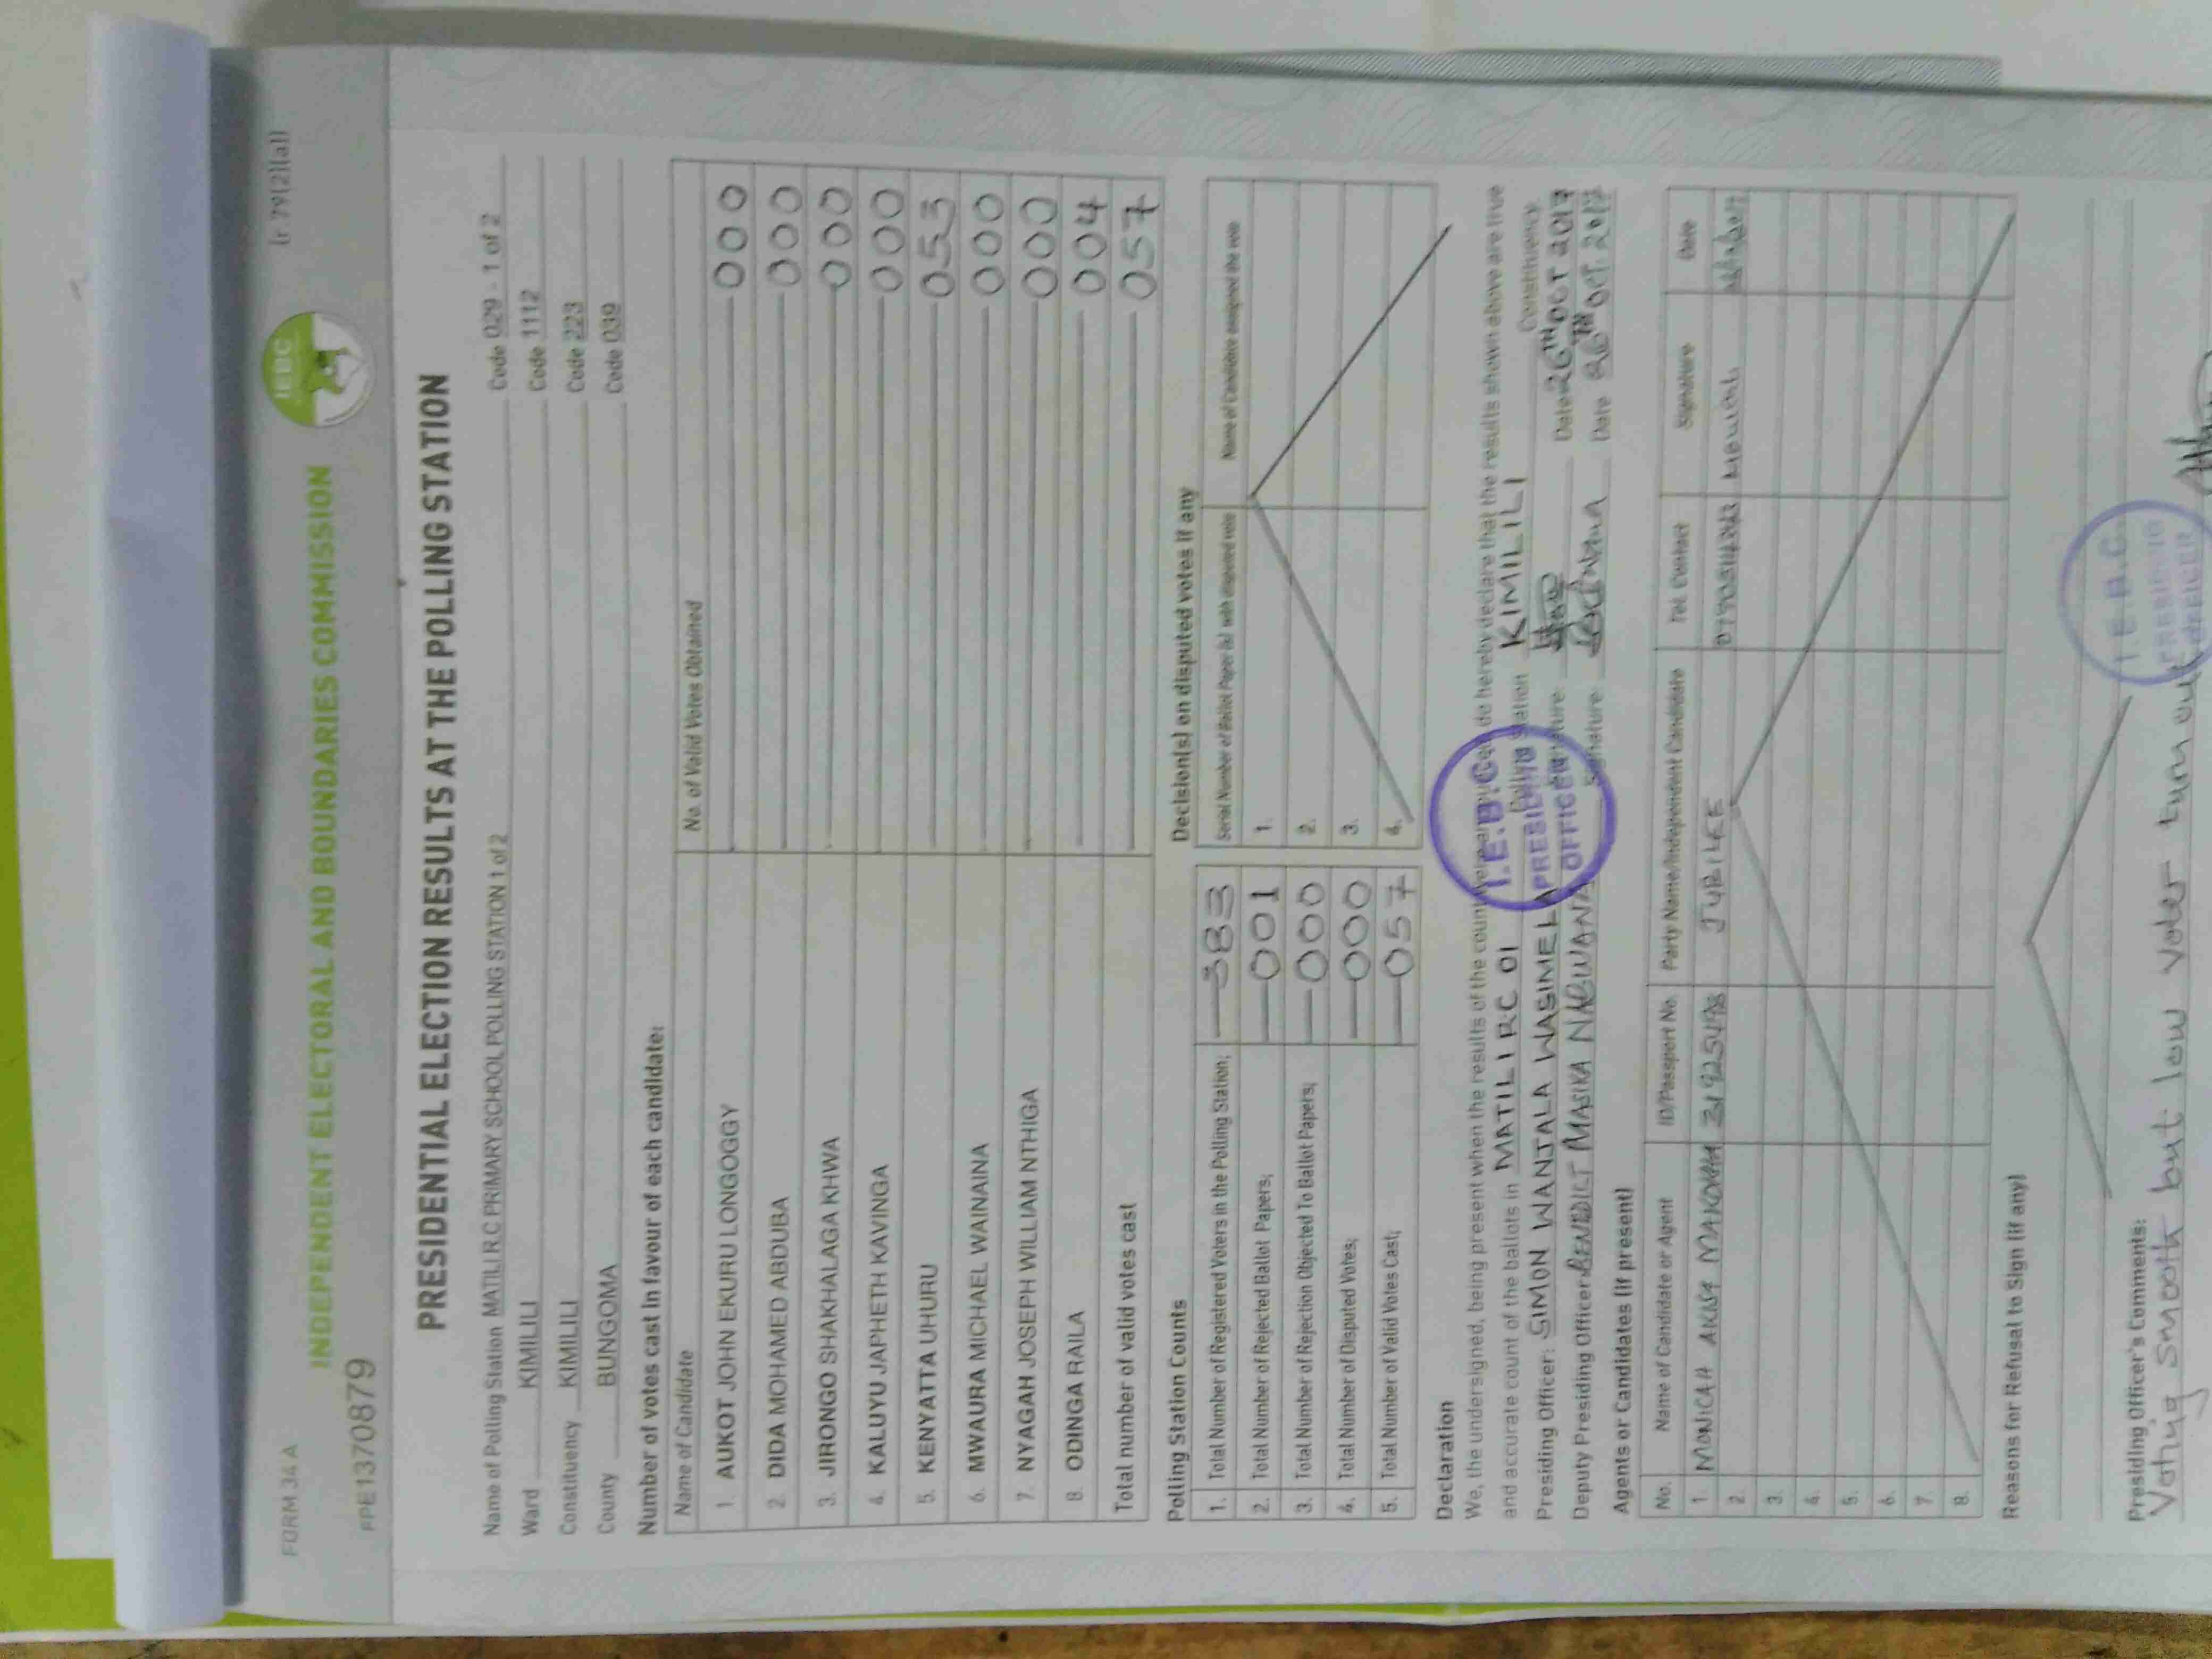 FORM 34 A
(r 79(2)(a))
IEBC
INDEPENDENT ELECTORAL AND BOUNDARIES COMMISSION
PPE1370879
PRESIDENTIAL ELECTION RESULTS AT THE POLLING STATION
Name of Polling Station MATILI R.C PRIMARY SCHOOL POLLING STATION 1 of 2 Code 029 - 1 of 2
Ward KIMILILI Code 1112
Constituency KIMILILI Code 223
County BUNGOMA Code 039
Number of votes cast in favour of each candidate:
Name of Candidate No. of Valid Votes Obtained
1. AUKOT JOHN EKURU LONGOGGY 000
2. DIDA MOHAMED ABDUBA 000
3. JIRONGO SHAKHALAGA KHWA 000
4. KALUYU JAPHETH KAVINGA 000
5. KENYATTA UHURU 053
6. MWAURA MICHAEL WAINAINA 000
7. NYAGAH JOSEPH WILLIAM NTHIGA 000
8. ODINGA RAILA 004
Total number of valid votes cast 057
Polling Station Counts
1. Total Number of Registered Voters in the Polling Station; 383
2. Total Number of Rejected Ballot Papers; 001
3. Total Number of Rejection Objected To Ballot Papers; 000
4. Total Number of Disputed Votes; 000
5. Total Number of Valid Votes Cast; 057
Decision(s) on disputed votes if any
Serial Number of Ballot Paper (s) with disputed vote Name of Candidate assigned the vote
1.
2.
3.
4.
Declaration
We, the undersigned, being present when the results of the count were do hereby declare that the results shown above are true
and accurate count of the ballots in MATILI RC 01 Polling Station KIMILILI Constituency.
Presiding Officer: SIMON WANJALA WASIMELA Signature Date 26TH OCT 2017
Deputy Presiding Officer BENEDICT MASIKA Signature Date 26TH OCT. 2017
I.E.B.C.
PRESIDING
OFFICER
Agents or Candidates (if present)
No. Name of Candidate or Agent ID/Passport No. Party Name/Independent Candidate Tel. Contact Signature Date
1. MONICAH JUBILEE
2.
3.
4.
5.
6.
7.
8.
Reasons for Refusal to Sign (if any)
Presiding Officer's Comments:
Voting smooth but low voter turn out
I.E.B.C.
PRESIDING
OFFICER